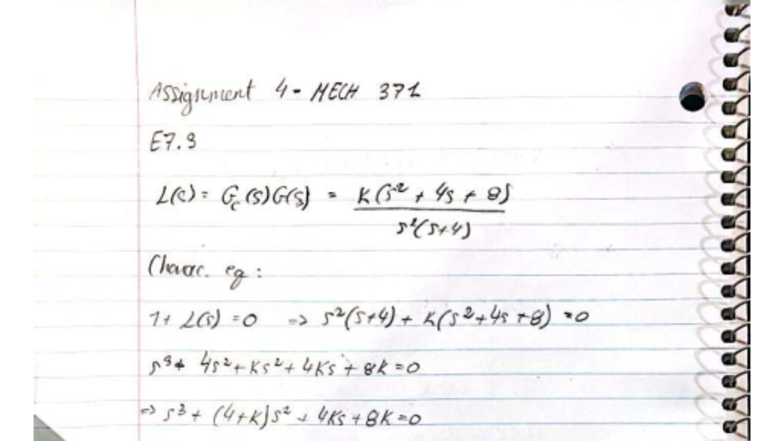 Assignment 4 - MECH 371
E7.9
L(s) = Gc(s)G(s) = K(s² + 4s + 8)
s²(s+4)
Charac. eq :
1 + L(s) = 0 => s²(s+4) + K(s² + 4s + 8) = 0
s³ + 4s² + Ks² + 4Ks + 8K = 0
=> s³ + (4+K)s² + 4Ks + 8K = 0